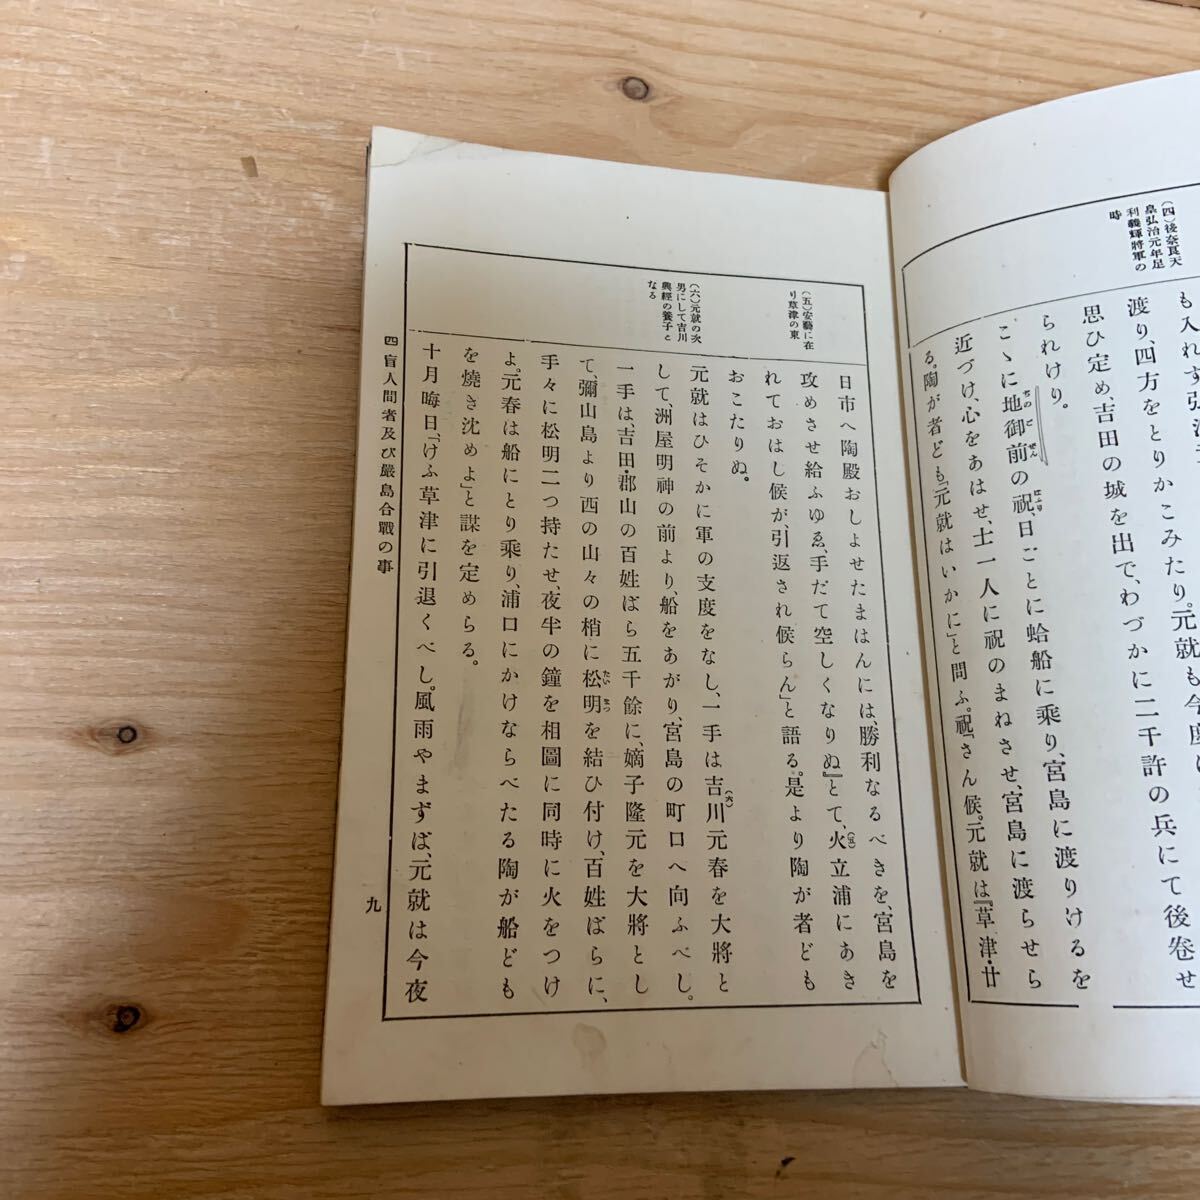 (四)後奈良天
皇弘治元年足
利義輝將軍の
時
渡り、四方をとりかこみたり。元就も今度
思ひ定め、吉田の城を出で、わづかに二千許の兵にて後卷せ
られけり。
こゝに地御前の祝、日ごとに蛤船に乘り、宮島に渡りけるを
近づけ、心をあはせ、士一人に祝のまねさせ、宮島に渡らせら
る。陶が者ども「元就はいかに」と問ふ。祝「さん候。元就は『草津・廿
(五)安藝に在
り草津の東
(六)元就の次
男にして吉川
興經の養子と
なる
日市へ陶殿おしよせたまはんには、勝利なるべきを、宮島を
攻めさせ給ふゆゑ、手だて空しくなりぬ』とて、火立浦にあき
(五)
れておはし候が、引返され候らん」と語る。是より陶が者ども
おこたりぬ。
元就はひそかに軍の支度をなし、一手は吉川元春を大將と
(六)
して、洲屋明神の前より、船をあがり、宮島の町口へ向ふべし。
一手は、吉田・郡山の百姓ばら五千餘に、嫡子隆元を大將とし
て、彌山島より西の山々の梢に松明を結ひ付け、百姓ばらに、
手々に松明二つ持たせ、夜半の鐘を相圖に同時に火をつけ
よ。元春は船にとり乘り、浦口にかけならべたる陶が船ども
を燒き沈めよ」と謀を定めらる。
十月晦日「けふ草津に引退くべし。風雨やまずば、元就は今夜
四 盲人間者及び嚴島合戰の事
九